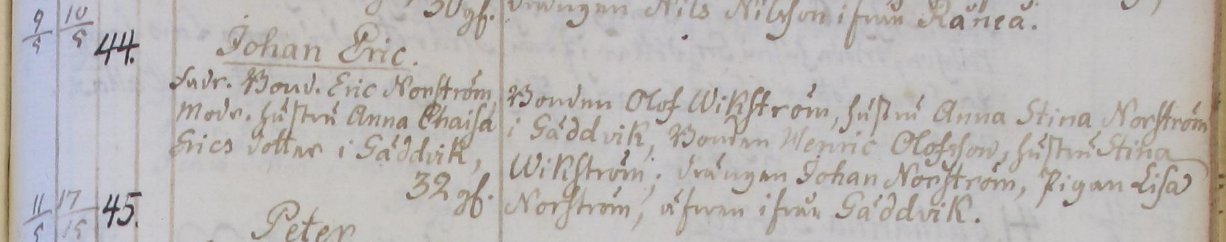 30 gf. Drängen Nils Nilsson ifrån Råneå.
9/5 10/5 44. Johan Eric.
Fadr. Bond. Eric Norström,
Modr. hustru Anna Chaisa
Erics dotter i Gäddvik,
32 gf.
Bonden Olof Wikström, hustru Anna Stina Norström
i Gäddvik, Bonden Henric Olofsson, hustru Stina
Wikström; drängen Johan Norström, Pigan Lisa
Norström, äfven ifrån Gäddvik.
11/5 17/5 45. Peter